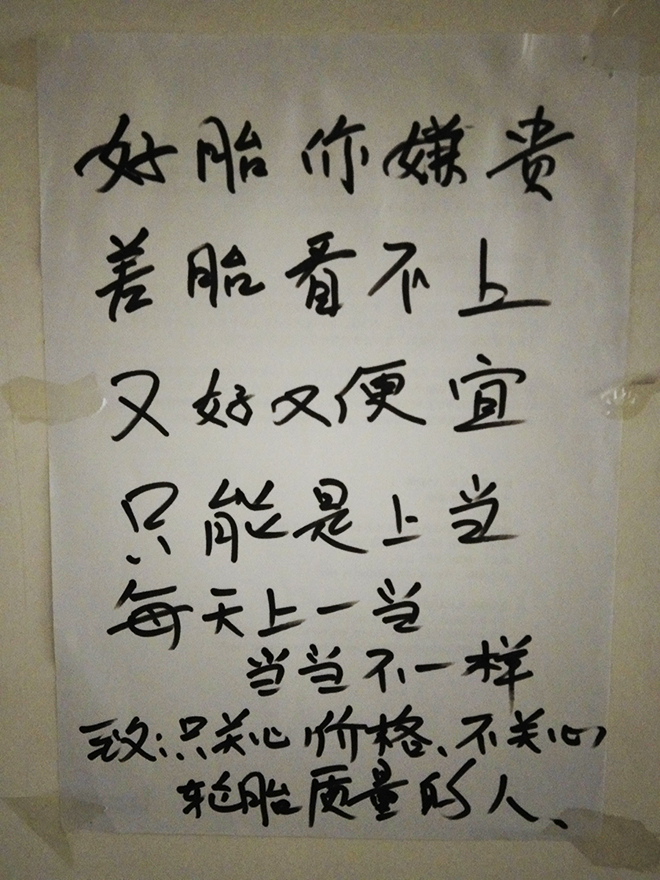 好胎你嫌贵
差胎看不上
又好又便宜
只能是上当
每天上一当
当当不一样
致:只关心价格、不关心
轮胎质量的人、